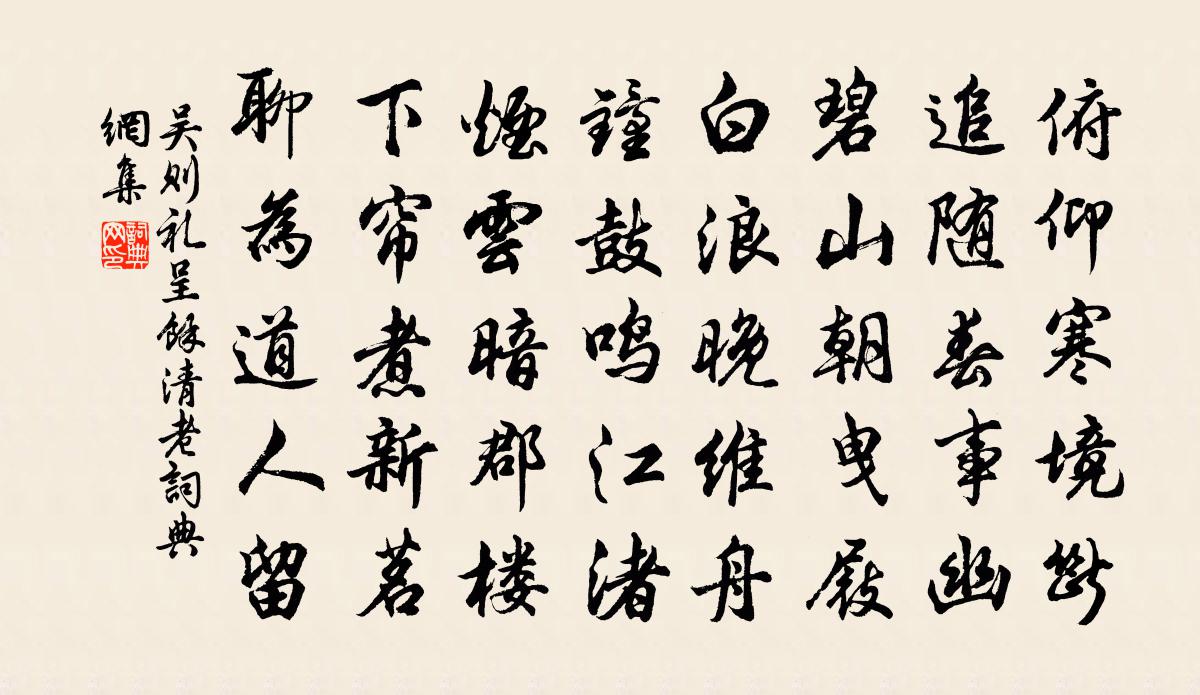 俯仰寒境断
追随春事幽
碧山朝曳屐
白浪晚维舟
鐘鼓鸣江渚
煙雲暗郡楼
下帘煮新茗
聊為道人留
吴则礼呈餘清老詞典
網集
詞典
网印